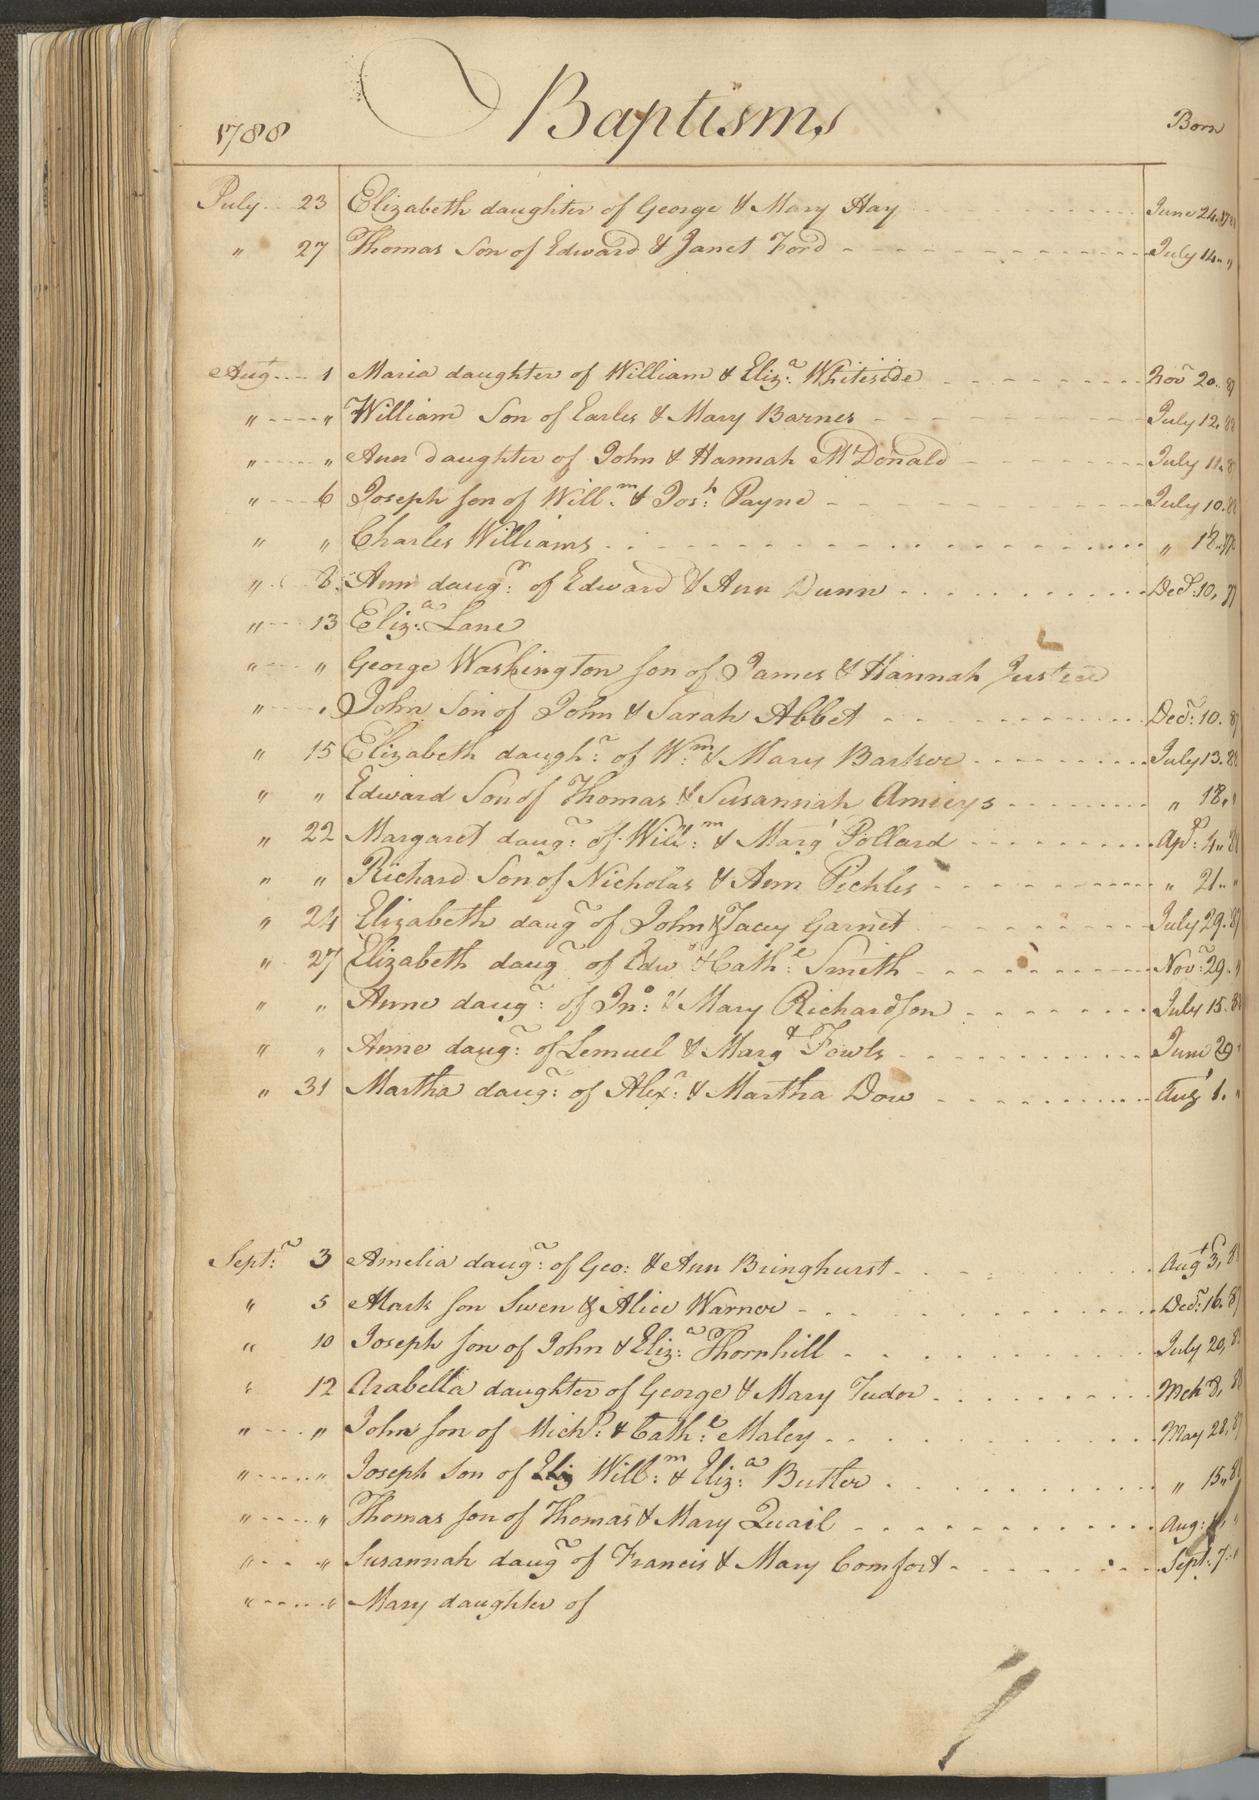 1788 Baptisms Born
July 23 Elizabeth daughter of George & Mary Hay June 24.
" 27 Thomas Son of Edward & Janet Ford July 14. "
Augt 1 Maria daughter of William & Eliza: Whiteside Novr 20. 87
" " William Son of Earles & Mary Barnes July 12. 88
" " Ann daughter of John & Hannah McDonald July 11. 8
" 6 Joseph son of Willm: & Josh: Payne July 10. 88
" " Charles Williams " 18.
" 8. Ann daugr: of Edward & Ann Dunn Decr: 10,
" 13 Eliza: Lane
" " George Washington son of James & Hannah Justice
" " John Son of John & Sarah Abbet Decr: 10. 87
" 15 Elizabeth daughr: of Wm: & Mary Barker July 13. 88
" " Edward Son of Thomas & Susannah Amieys " 18. "
" 22 Margaret daugr: of Willm: & Margt Pollard Apl: 4. 88
" " Richard Son of Nicholas & Ann Pickles " 21. "
" 24 Elizabeth daugr of John & Tacey Garnet July 29. 8
" 27 Elizabeth daugr of Edwd & Cathe: Smith Novr: 29. "
" " Anne daugr: of Jno: & Mary Richardson July 15. 88
" " Anne daugr: of Lemuel & Margt Fowls June 29 "
" 31 Martha daugr: of Alexr: & Martha Dow Augt 1. "
Septr: 3 Amelia daugr: of Geo: & Ann Bringhurst Augt 3, 88
" 5 Mark son Swen & Alice Warner Decr: 16. 87
" 10 Joseph son of John & Eliza: Thornhill July 20, 88
" 12 Arabella daughter of George & Mary Tudor Mch 8, 88
" " John son of Michl: & Cathe: Maley May 28, 87
" " Joseph Son of Eliz Willm: & Eliza: Butler " 15, 8
" " Thomas son of Thomas & Mary Quail Aug:
" " Susannah daugr of Francis & Mary Comfort Sept: 7. "
" " Mary daughter of